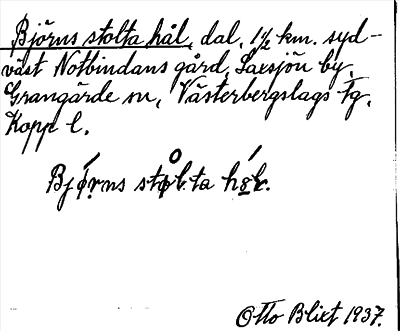 Björns stolta hål, dal, 1½ km. syd-
väst Notbindans gård, Laxsjön by.
Grangärde sn, Västerbergslags tg.
Kopp. l.
Bjǿrns stol.ta hǫ́l.
Otto Blixt 1937.